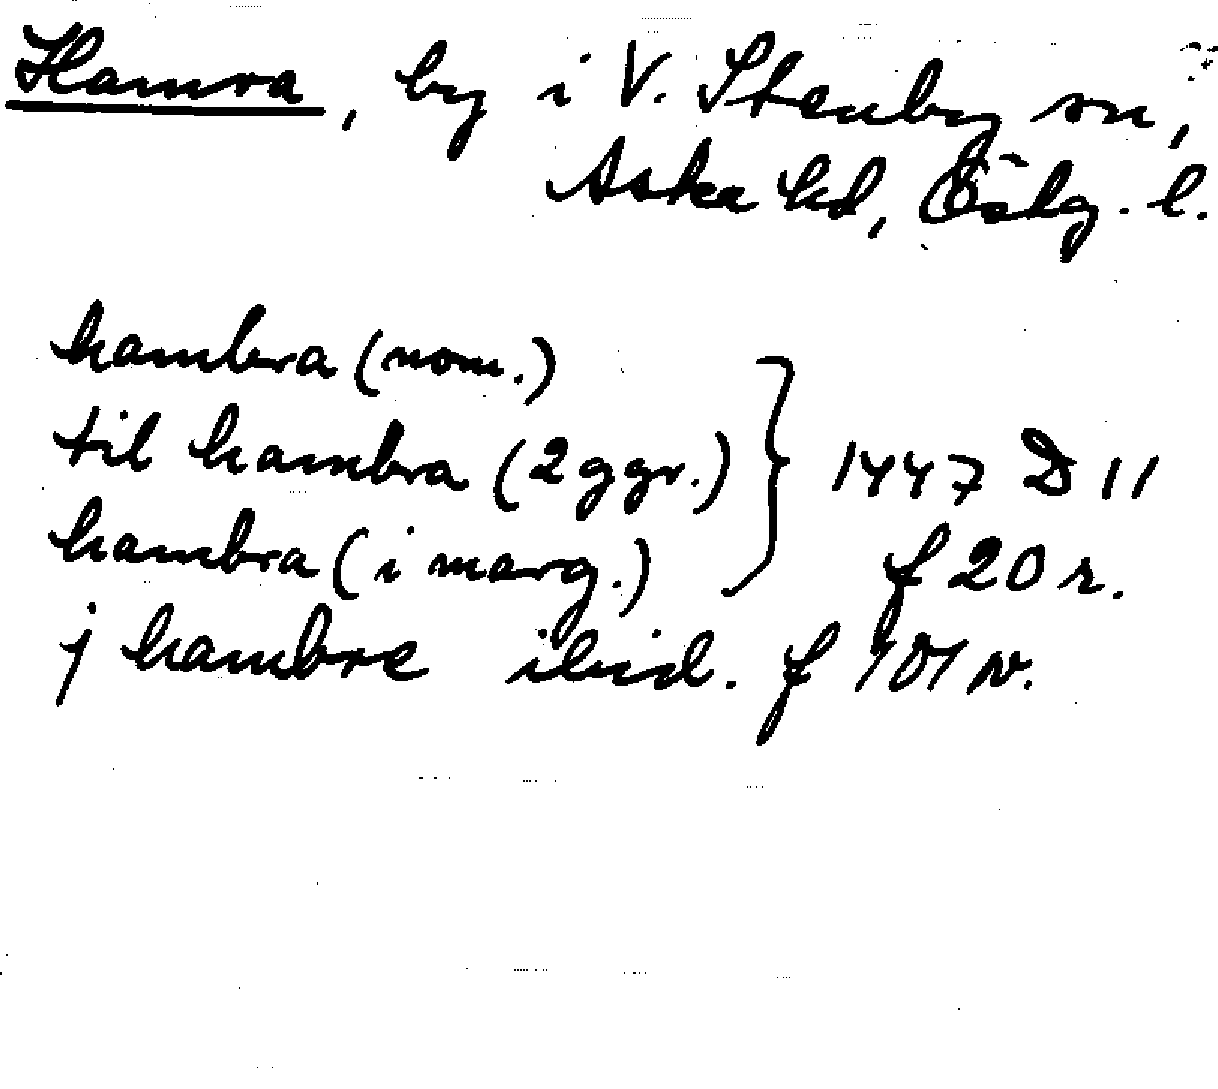 Hamra, by i V. Stenby sn,
Aska hd, Östg. l.
hambra (nom.)
til hambra (2 ggr.) } 1447 D 11
hambra (i marg.) f 20 r.
j hambre ibid. f 101 v.